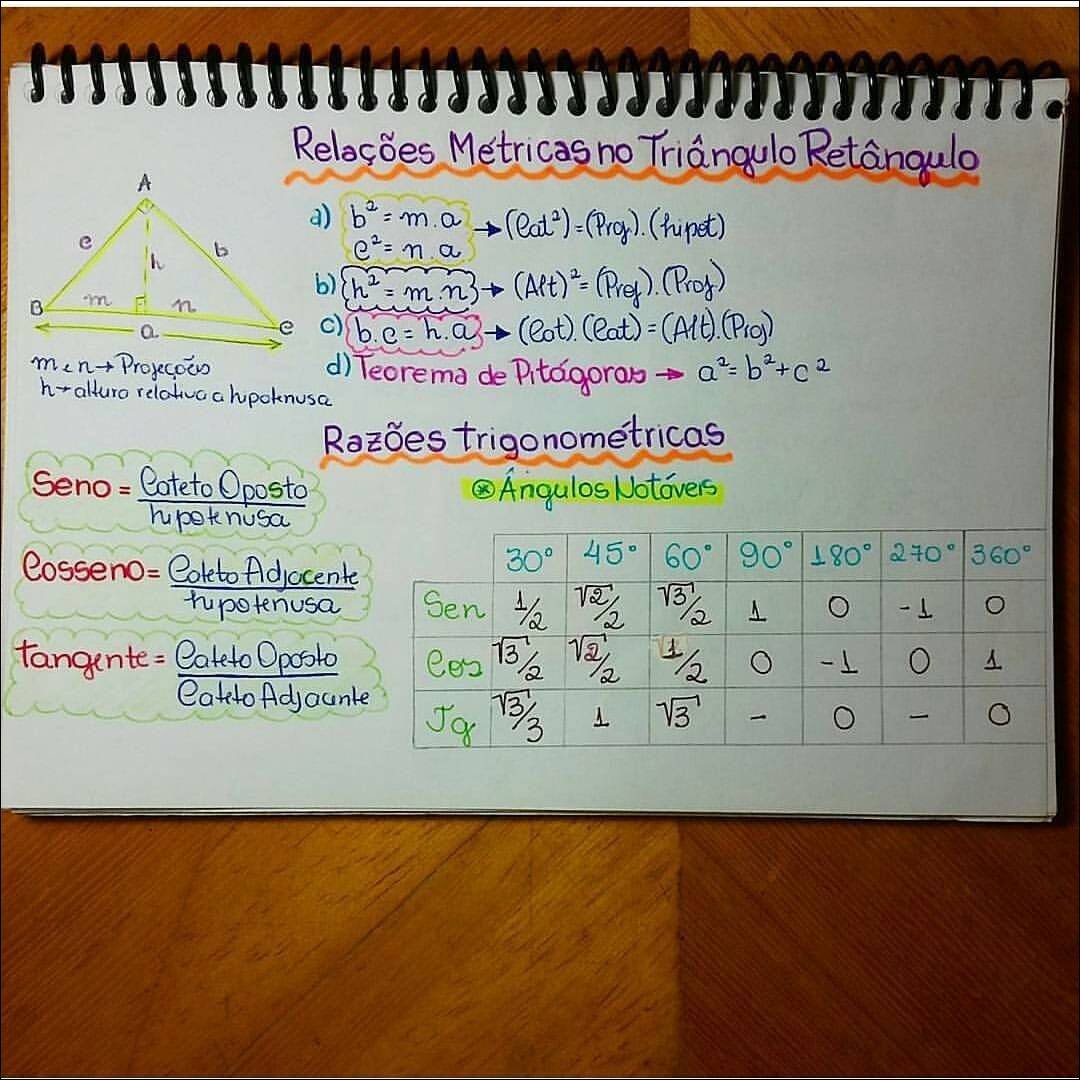 Relações Métricas no Triângulo Retângulo
A
c
b
h
B
m
n
c
a
m e n → Projeções
h → altura relativa a hipotenusa
a) b² = m.a → (Cat²) = (Proj).(hipot)
c² = n.a
b) h² = m.n → (Alt)² = (Proj).(Proj)
c) b.c = h.a → (Cat).(Cat) = (Alt).(Proj)
d) Teorema de Pitágoras → a² = b² + c²
Razões trigonométricas
Seno = Cateto Oposto
hipotenusa
Cosseno = Cateto Adjacente
hipotenusa
tangente = Cateto Oposto
Cateto Adjacente
⊛ Ângulos Notáveis
30° 45° 60° 90° 180° 270° 360°
Sen 1/2 √2/2 √3/2 1 0 -1 0
Cos √3/2 √2/2 1/2 0 -1 0 1
Tg √3/3 1 √3 - 0 - 0